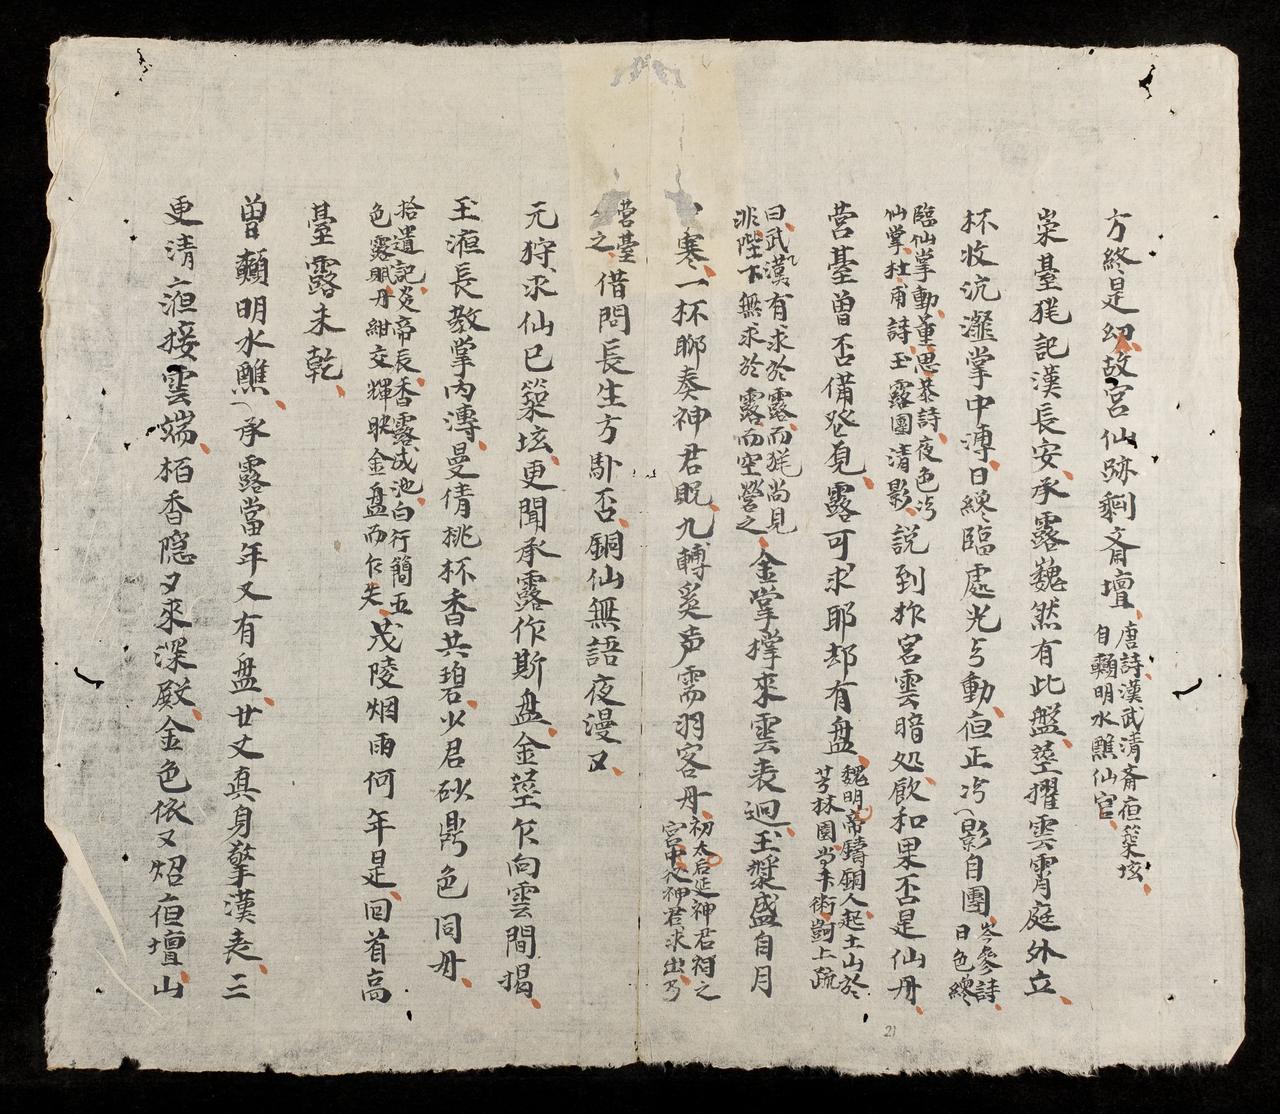 方終是幻故宮仙跡剩齋壇唐詩漢武清齋夜築壇
自斟明水醮仙官
崇臺猶記漢長安承露巍然有此盤莖擢雲霄庭外立
杯收沆瀣掌中漙日纔臨處光与動夜正冷影自團岑參詩
日色纔
臨仙掌動董思恭詩夜色冷
仙掌杜甫詩玉露團清影說到祚宮雲暗処飲和果否是仙丹
营臺曾否備登見露可求耶却有盘魏明帝鑄銅人起土山於
芳林園當朱術訶上疏
曰武漢有求於露而猶尚見
非陛下無求於露而空營之金掌撑來雲表迥玉漿盛自月
寒一杯聊奏神君貺九轉奚声需羽客丹初太后延神君祠之
宮中神君求出乃
营臺
之借問長生方馱否銅仙無語夜漫又
元狩求仙已築坛更聞承露作斯盘金莖乍向雲間揭
玉液長教掌內漙曼倩桃杯香共碧少君砂鼎色同丹
拾遺記炎帝辰香露成池白行簡玉
色露賦丹紺交輝映金盘而乍失茂陵烟雨何年是回首高
臺露未乾
曾斟明水醮承露當年又有盘廿丈真身擎漢表三
更清夜接雲端栢香隐又來深殿金色依又炤夜壇山